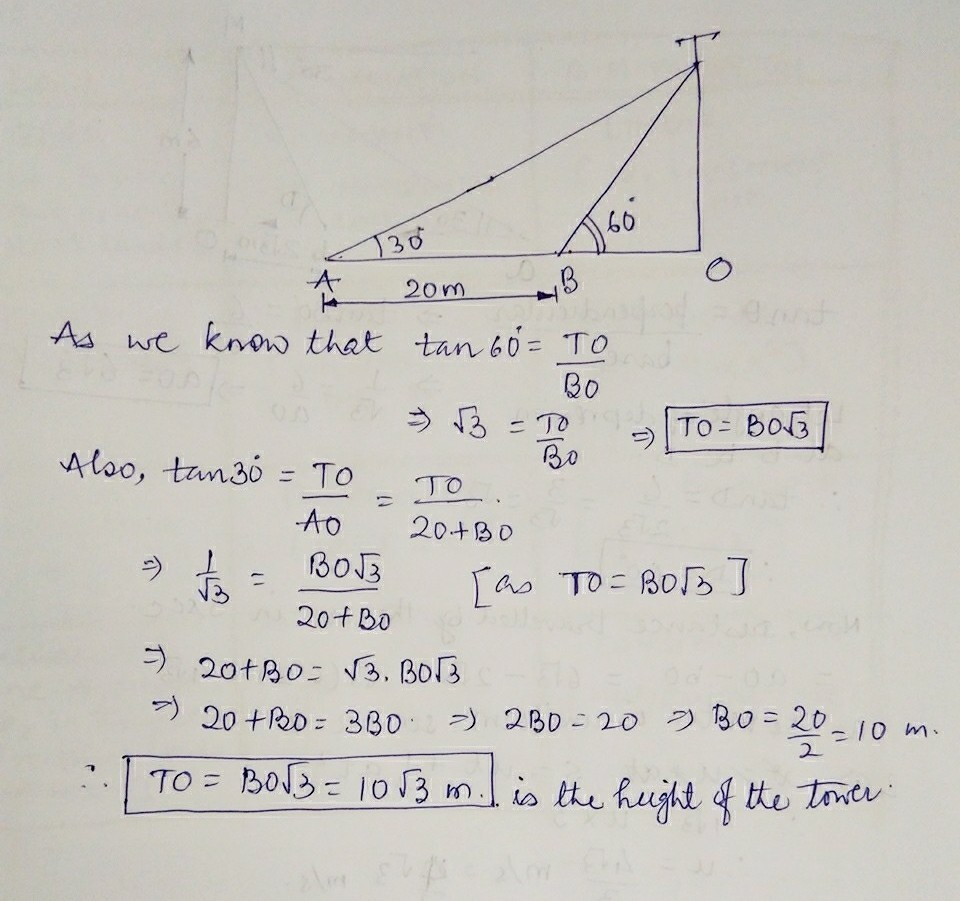 T
30°
60°
A
B
O
20m
As we know that tan 60° = TO/BO
⇒ √3 = TO/BO ⇒ TO = BO√3
Also, tan 30° = TO/AO = TO/20+BO.
⇒ 1/√3 = BO√3/20+BO [as TO = BO√3]
⇒ 20+BO = √3. BO√3
⇒ 20+BO = 3BO. ⇒ 2BO = 20 ⇒ BO = 20/2 = 10 m.
∴ TO = BO√3 = 10√3 m. is the height of the tower.